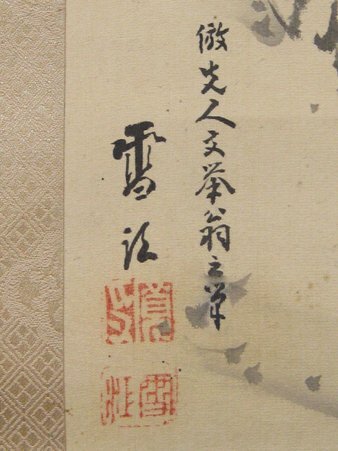 倣先人文挙翁之筆
雪江
雪江